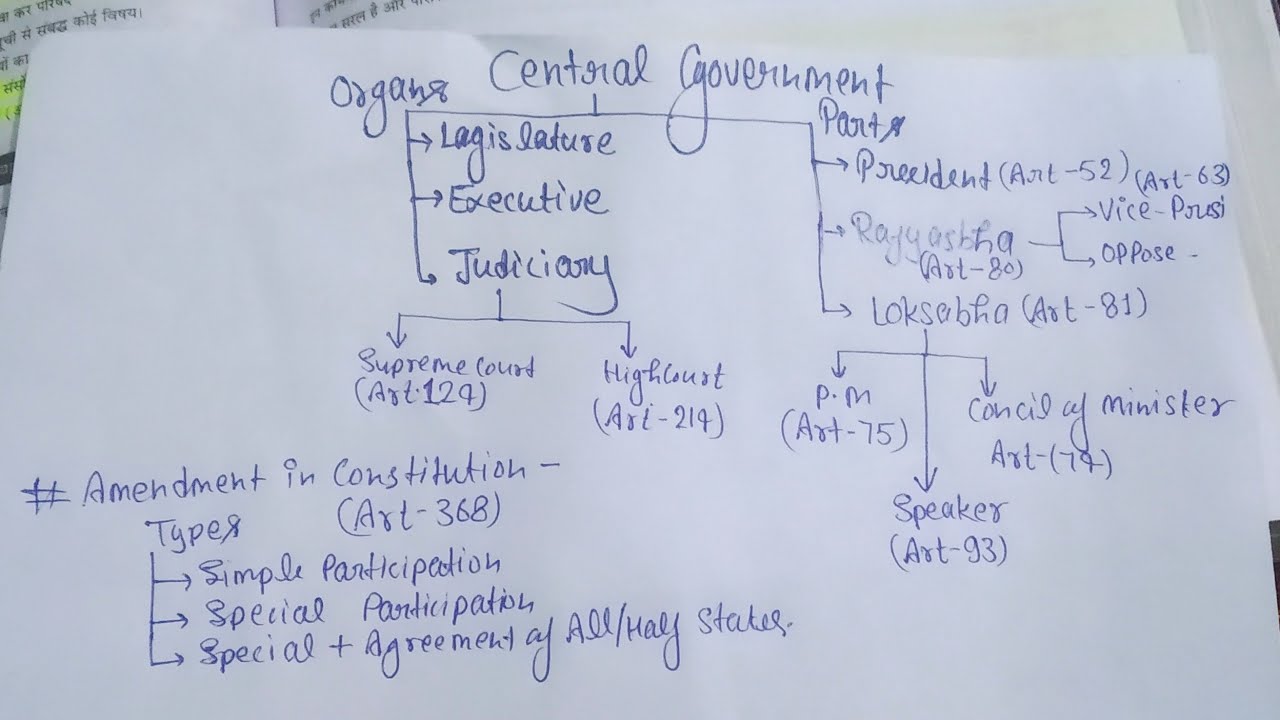 वा कर परिषद
सूची से संबद्ध कोई विषय।
Central Government
Organs
Parts
Lagislature
Executive
Judiciary
Supreme Court
(Art.124)
High Court
(Art-214)
Preeident (Art-52) (Art-63)
Rajyasbha
(Art-80)
Vice-Presi
Oppose -
Loksabha (Art-81)
P.M
(Art-75)
Concil of minister
Art-(74)
Speaker
(Art-93)
# Amendment in Constitution -
(Art-368)
Types
Simple Participation
Special Participation
Special + Agreement of All/Half States.